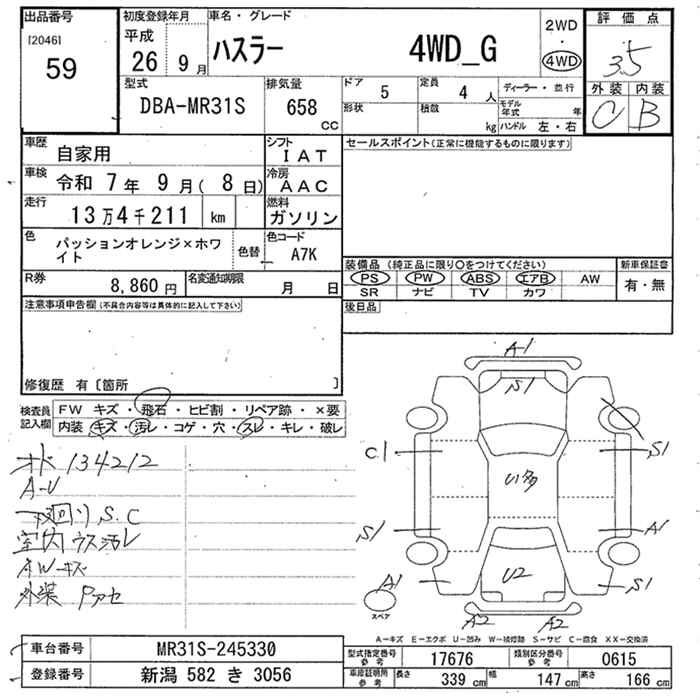 出品番号
[2046]
59
初度登録年月
平成
26 年 9 月
車名・グレード
ハスラー
4WD_G
2WD
4WD
評価点
3.5
外装 内装
C B
型式
DBA-MR31S
排気量
658
cc
ドア
5
形状
定員
4 人
積載
kg
ディーラー・並行
モデル年式 年
ハンドル 左・右
車歴
自家用
シフト
IAT
車検
令和 7 年 9 月( 8 日)
冷房
AAC
走行
13 万 4 千 211 km
燃料
ガソリン
色
パッションオレンジ×ホワイト
色替
色コード
A7K
R券
8,860 円
名変通知期限
月 日
セールスポイント(正常に機能するものに限ります)
装備品 (純正品に限り○をつけてください)
新車保証書
PS PW ABS エアB AW
有・無
SR ナビ TV カワ
後日品
注意事項申告欄(不具合内容等は具体的に記入して下さい)
修復歴 有〔箇所 〕
検査員記入欄
FW キズ・飛石・ヒビ割・リペア跡・×要
内装 キズ・汚レ・コゲ・穴・スレ・キレ・破レ
オド 134212
A-U
下廻り S.C
室内 ウス汚レ
AWキズ
外装 Pアセ
A1
S1
C1
S1
U多
S1
A1
A1
U2
S1
A2
A2
スペア
A-キズ E-エクボ U-凹み W-補修跡 S-サビ C-腐食 XX-交換済
車台番号
MR31S-245330
登録番号
新潟 582 き 3056
型式指定番号 参考
17676
類別区分番号 参考
0615
車庫証明用 参考
長さ 339 cm
幅 147 cm
高さ 166 cm